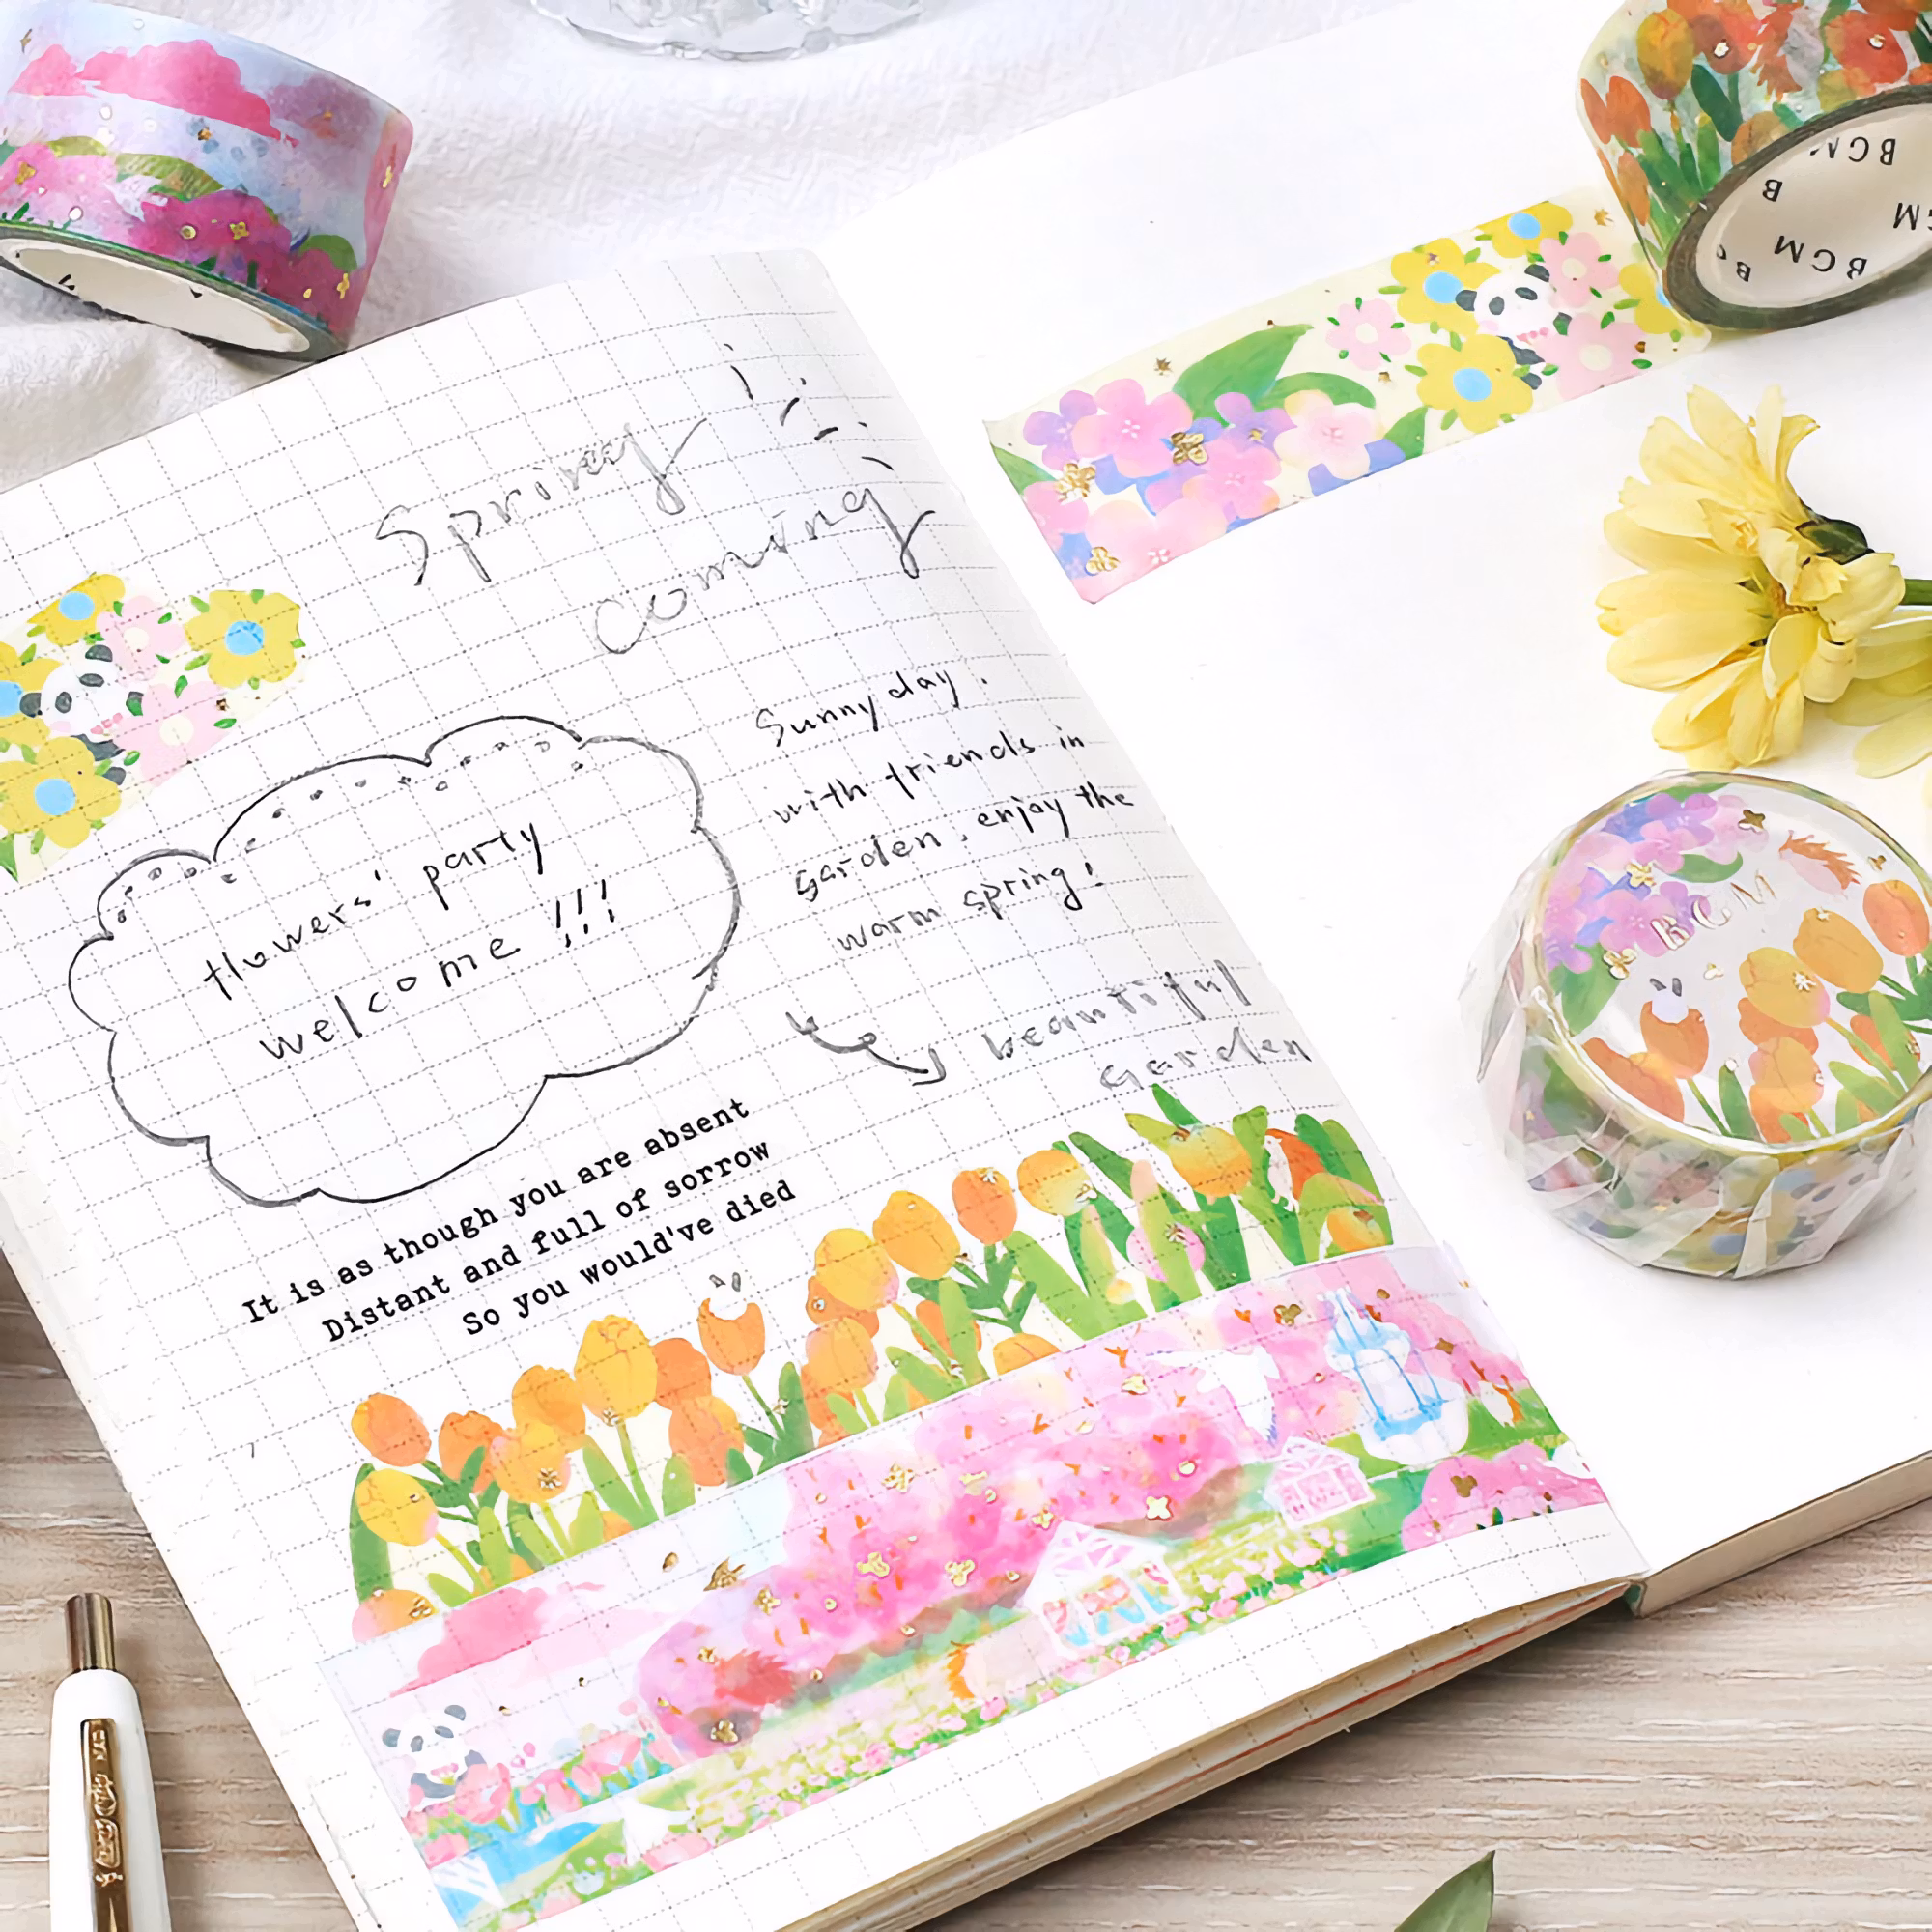 Spring
coming
Sunny day.
with friends in
garden, enjoy the
warm spring!
flowers' party
welcome !!!
beautiful
Garden
It is as though you are absent
Distant and full of sorrow
So you would've died
BGM
BGM
BGM